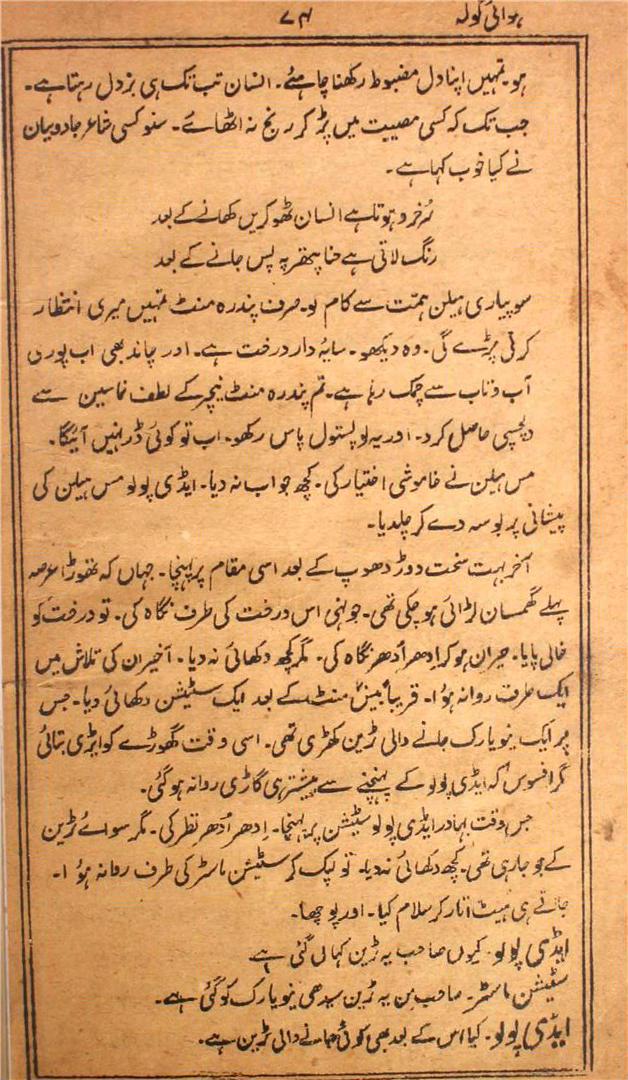 ہوائی گولہ ۷۴
ہو۔ تمہیں اپنا دل مضبوط رکھنا چاہئے۔ انسان تب تک ہی بزدل رہتا ہے۔
جب تک کہ کسی مصیبت میں پڑ کر رنج نہ اٹھائے۔ سنو کسی شاعر جادو بیان
نے کیا خوب کہا ہے۔
سُرخرو ہوتا ہے انسان ٹھوکریں کھانے کے بعد
رنگ لاتی ہے حنا پتھر پہ پس جانے کے بعد
سو پیاری ہیلن ہمّت سے کام لو۔ صرف پندرہ منٹ تمہیں میری انتظار
کرنی پڑے گی۔ وہ دیکھو۔ سایہ دار درخت ہے۔ اور چاند بھی اب پوری
آب و تاب سے چمک رہا ہے۔ تم پندرہ منٹ نیچر کے لطف سے
دلچسپی حاصل کرو۔ اور یہ لو پستول پاس رکھو۔ اب تو کوئی ڈر نہیں آئیگا۔
مس ہیلن نے خاموشی اختیار کی۔ کچھ جواب نہ دیا۔ ایڈی پولو مس ہیلن کی
پیشانی پر بوسہ دے کر چلدیا۔
آخر بہت سخت دوڑ دھوپ کے بعد اسی مقام پر پہنچا۔ جہاں کہ تھوڑا عرصہ
پہلے گھمسان لڑائی ہو چکی تھی۔ جونہی اس درخت کی طرف نگاہ کی۔ تو درخت کو
خالی پایا۔ حیران ہو کر اِدھر اُدھر نگاہ کی۔ مگر کچھ دکھائی نہ دیا۔ آخیر ان کی تلاش میں
ایک طرف روانہ ہؤا۔ قریباً بیس منٹ کے بعد ایک سٹیشن دکھائی دیا۔ جس
پر ایک نیویارک جانے والی ٹرین کھڑی تھی۔ اسی وقت گھوڑے کو ایڑی بتائی
مگر افسوس کہ ایڈی پولو کے پہنچنے سے پیشتر ہی گاڑی روانہ ہو گئی۔
جس وقت بہادر ایڈی پولو سٹیشن پر پہنچا۔ اِدھر اُدھر نظر کی۔ مگر سوائے ٹرین
کے جو جا رہی تھی۔ کچھ دکھائی نہ دیا۔ تو لپک کر سٹیشن ماسٹر کی طرف روانہ ہؤا۔
جاتے ہی ہیٹ اتار کر سلام کیا۔ اور پوچھا۔
ایڈی پولو۔ کیوں صاحب یہ ٹرین کہاں گئی ہے
سٹیشن ماسٹر۔ صاحب من یہ ٹرین سیدھی نیویارک کو گئی ہے۔
ایڈی پولو۔ کیا اس کے بعد بھی کوئی جانے والی ٹرین ہے۔